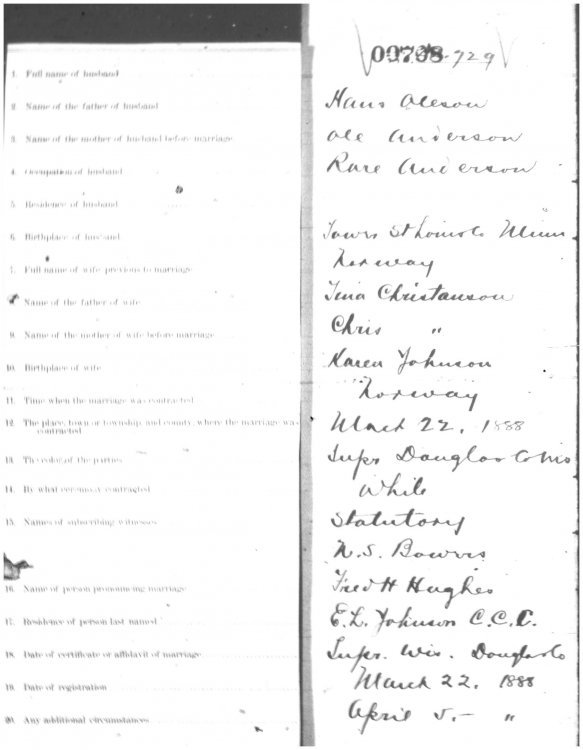 00798 729
1. Full name of husband
2. Name of the father of husband
3. Name of the mother of husband before marriage
4. Occupation of husband
5. Residence of husband
6. Birthplace of husband
7. Full name of wife previous to marriage
Name of the father of wife
9. Name of the mother of wife before marriage
10. Birthplace of wife
11. Time when the marriage was contracted
12. The place, town or township and county, where the marriage was
contracted
13. The color of the parties
14. By what ceremony contracted
15. Names of subscribing witnesses
16. Name of person pronouncing marriage
17. Residence of person last named
18. Date of certificate or affidavit of marriage
19. Date of registration
20. Any additional circumstances
Hans Oleson
Ole Anderson
Anderson
St Louis Co Minn
Norway
Tina Christanson
Chris "
Karen Johnson
Norway
March 22, 1888
Supr Douglas Co Wis
White
Statutory
N.S.
Fred H Hughes
E.L. Johnson C.C.C.
Supr. Wis. Douglas Co
March 22, 1888
April 5.- "